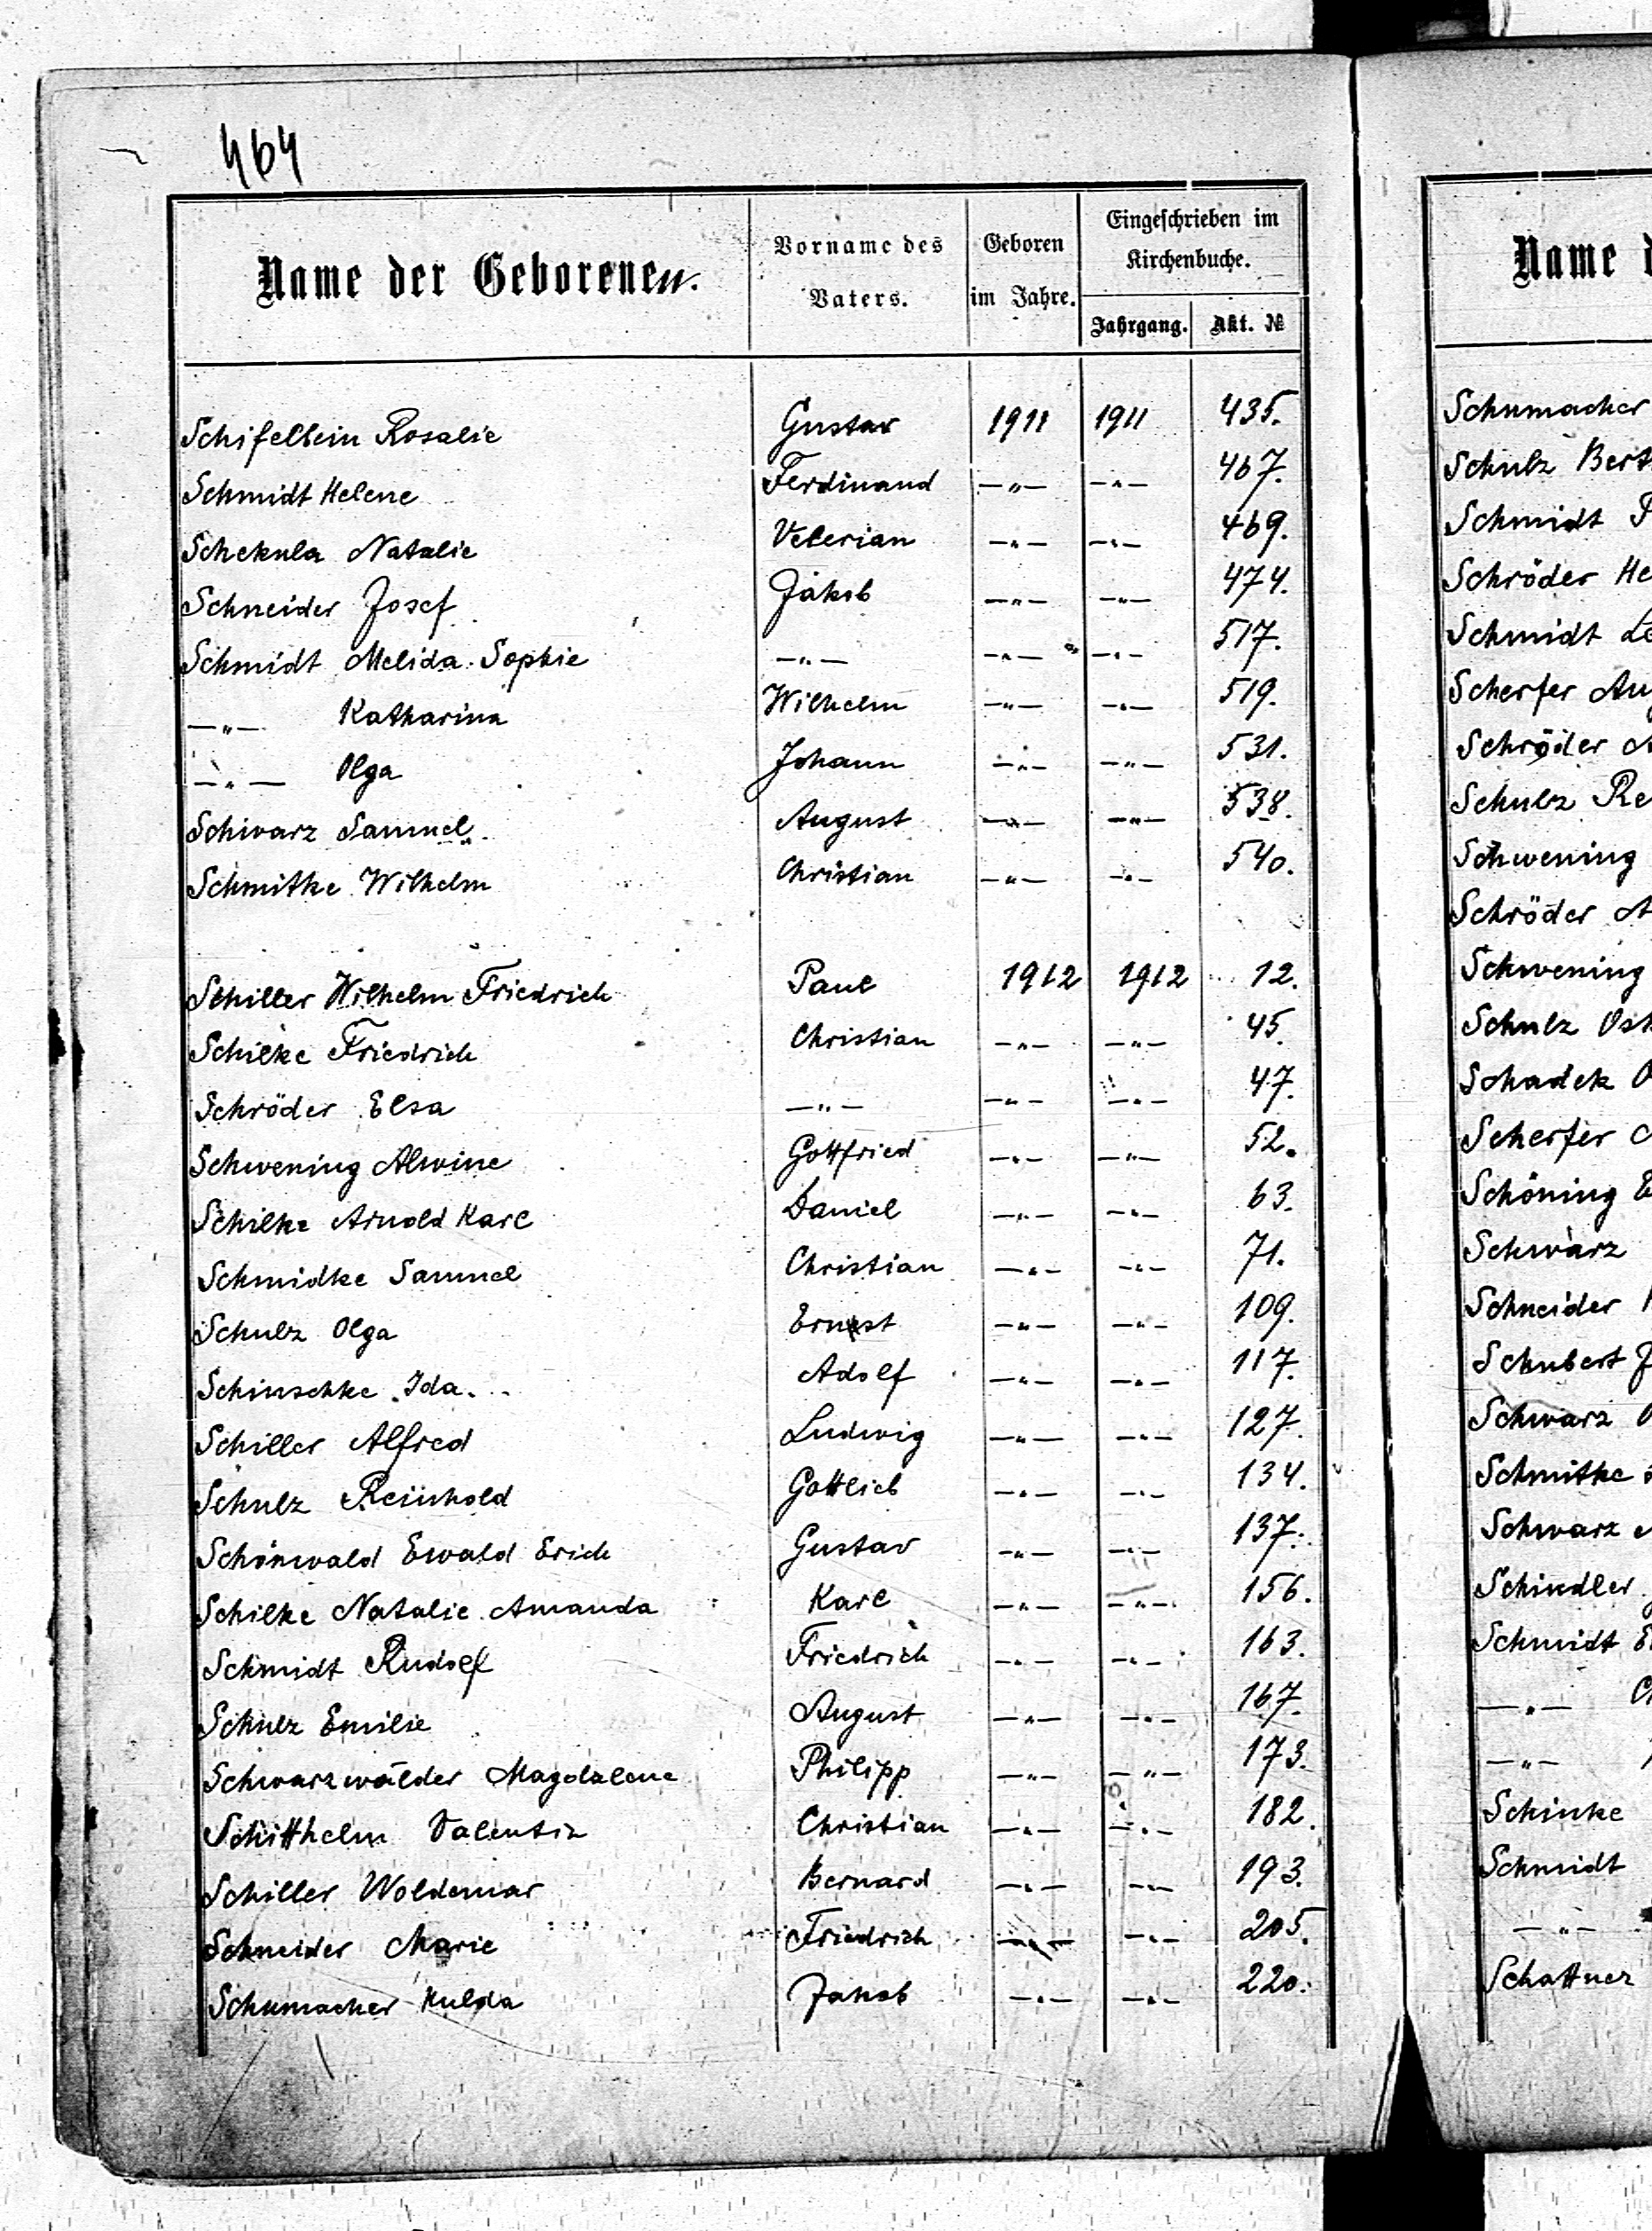 464
Name der Geborenen. Vorname des Vaters. Geboren im Jahre. Eingeschrieben im Kirchenbuche. Jahrgang. Akt. №
Schifelbein Rosalie Gustav 1911 1911 435.
Schmidt Helene Ferdinand —„— —„— 467.
Schekula Natalie Velerian —„— —„— 469.
Schneider Josef Jakob —„— —„— 474.
Schmidt Melida Sophie —„— —„— —„— 517.
—„— Katharina Wilhelm —„— —„— 519.
—„— Olga Johann —„— —„— 531.
Schwarz Samuel. August —„— —„— 538.
Schmitke Wilhelm Christian —„— —„— 540.
Schiller Wilhelm Friedrich Paul 1912 1912 12.
Schilke Friedrich Christian —„— —„— 45.
Schröder Elsa —„— —„— —„— 47.
Schwening Alwine Gottfried —„— —„— 52.
Schilke Arnold Karl Daniel —„— —„— 63.
Schmidke Samuel Christian —„— —„— 71.
Schulz Olga Ernst —„— —„— 109.
Schinschke Ida. Adolf —„— —„— 117.
Schiller Alfred Ludwig —„— —„— 127.
Schulz Reinhold Gottlieb —„— —„— 134.
Schönwald Ewald Erich Gustav —„— —„— 137.
Schilke Natalie Amanda Karl —„— —„— 156.
Schmidt Rudolf Friedrich —„— —„— 163.
Schulz Emilie August —„— —„— 167.
Schwarzwälder Magdalene Philipp —„— —„— 173.
Schitthelm Valentin Christian —„— —„— 182.
Schiller Woldemar Bernard —„— —„— 193.
Schneider Marie Friedrich —„— —„— 205.
Schumacher Hulda Jakob —„— —„— 220.
Name
Schumacher
Schulz
Schmidt
Schröder
Schmidt
Scherfer
Schröder
Schulz
Schwening
Schröder
Schwening
Schulz
Schadek
Scherfer
Schöning
Schwarz
Schneider
Schubert
Schwarz
Schmitke
Schwarz
Schindler
Schmidt
—„—
—„—
Schinke
Schmidt
—„—
Schattner